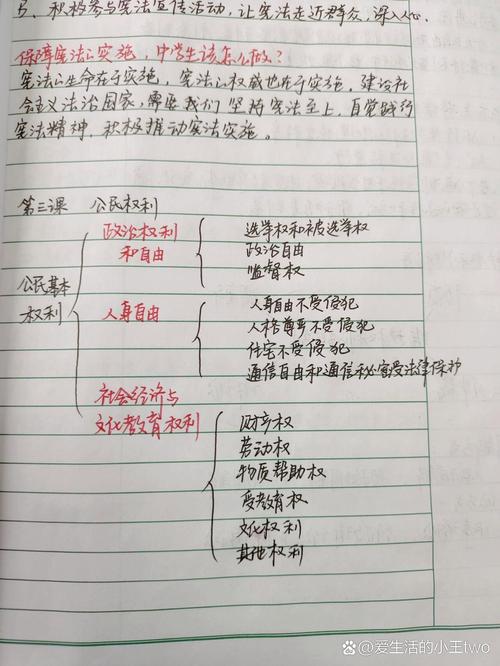 5、积极参与宪法宣传活动，让宪法走近群众，深入人心.
保障宪法的实施，中学生该怎么做？
宪法的生命在于实施，宪法的权威也在于实施，建设社
会主义法治国家，需要我们坚持宪法至上，自觉践行
宪法精神，积极推动宪法实施。
第三课 公民权利
政治权利
和自由
选举权和被选举权
政治自由
监督权
公民基本
权利
人身自由
人身自由不受侵犯
人格尊严不受侵犯
住宅不受侵犯
通信自由和通信秘密受法律保护
社会经济与
文化教育权利
财产权
劳动权
物质帮助权
受教育权
文化权利
其他权利
百家号/爱生活的小王two